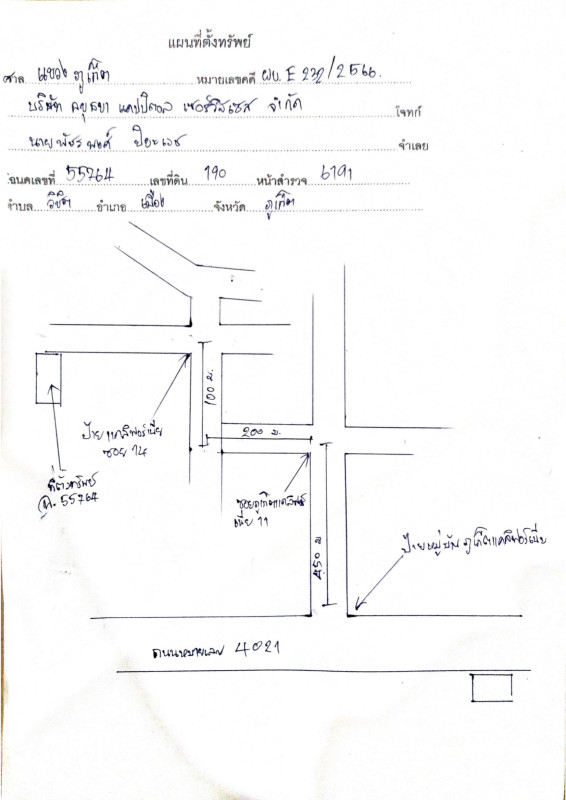 แผนที่ตั้งทรัพย์
ศาล แขวง ภูเก็ต หมายเลขคดี ผบ. E 232/2566.
บริษัท อยุธยา แคปปิตอล เซอร์วิสเซส จำกัด โจทก์
นาย พัชรพงศ์ ปิยะเวช จำเลย
โฉนดเลขที่ 55764 เลขที่ดิน 190 หน้าสำรวจ 6191
ตำบล วิชิต อำเภอ เมือง จังหวัด ภูเก็ต
100 ม.
ป้าย แคลิฟอร์เนีย
ซอย 14
200 ม.
ที่ตั้งทรัพย์
ฉ. 55764
ซอยภูเก็ตแคลิฟอร์
เนีย 11
450 ม
ป้ายหมู่บ้าน ภูเก็ตแคลิฟอร์เนีย
ถนนหมายเลข 4021